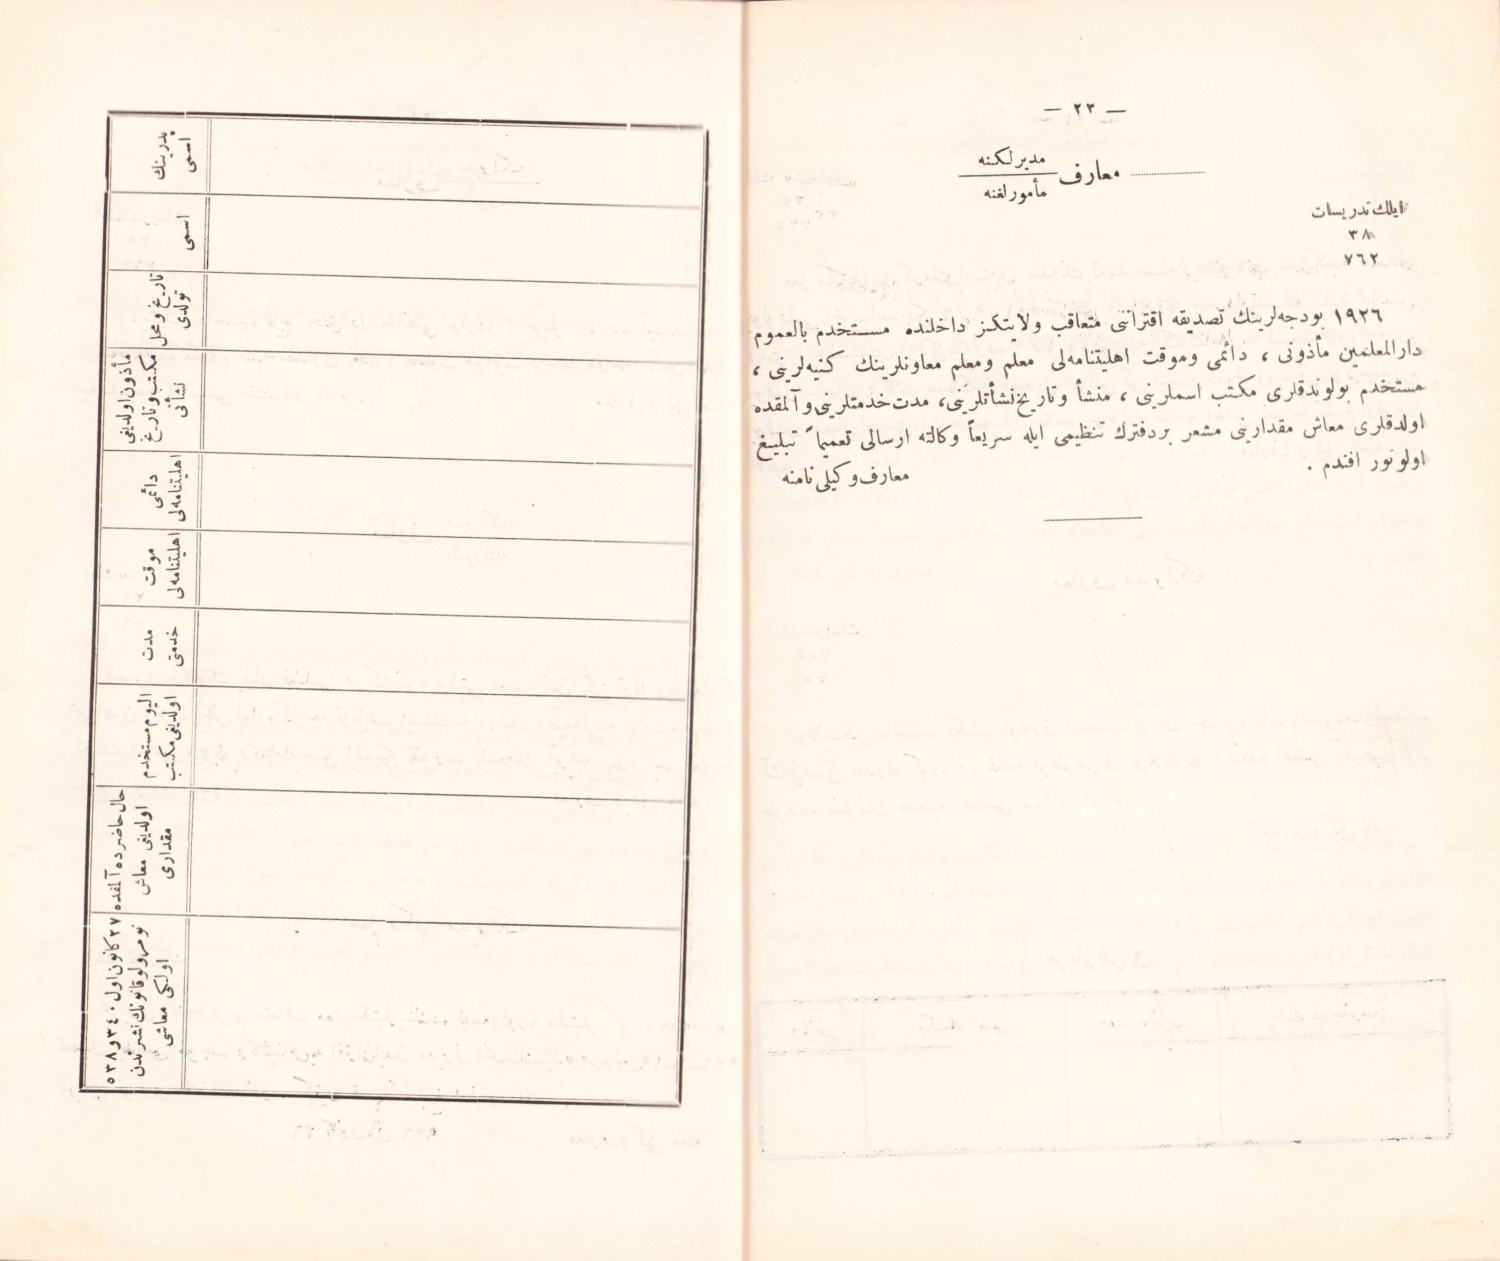 — ٢٣ —
معارف مديرلكنه
مأمورلغنه
ايلك تدريسات
٣٨
٧٦٢
١٩٢٦ بودجه‌لرينك تصديقه اقتراننى متعاقب ولايتكز داخلنده مستخدم بالعموم
دارالمعلمين مأذونى ، دائمى وموقت اهليتنامه‌لى معلم ومعلم معاونلرينك كنيه‌لرينى ،
مستخدم بولوندقلرى مكتب اسملرينى ، منشأ وتاريخ نشأتلرينى، مدت خدمتلرينى و آلمقده
اولدقلرى معاش مقدارينى مشعر بر دفترك تنظيمى ايله سريعاً وكالته ارسالى تعميماً تبليغ
اولونور افندم .
معارف وكيلى نامنه
پدرينك
اسمى
اسمى
تاريخ ومحل
تولدى
مأذون اولديغى
مكتب وتاريخ
نشأتى
دائمى
اهليتنامه‌لى
موقت
اهليتنامه‌لى
مدت
خدمتى
اليوم مستخدم
اولديغى مكتب
حال حاضرده آلمقده
اولديغى معاش
مقدارى
٢٧ كانون اول ٣٤٠ و ٥٣٨
نومرولو قانونك نشرندن
اولكى معاشى